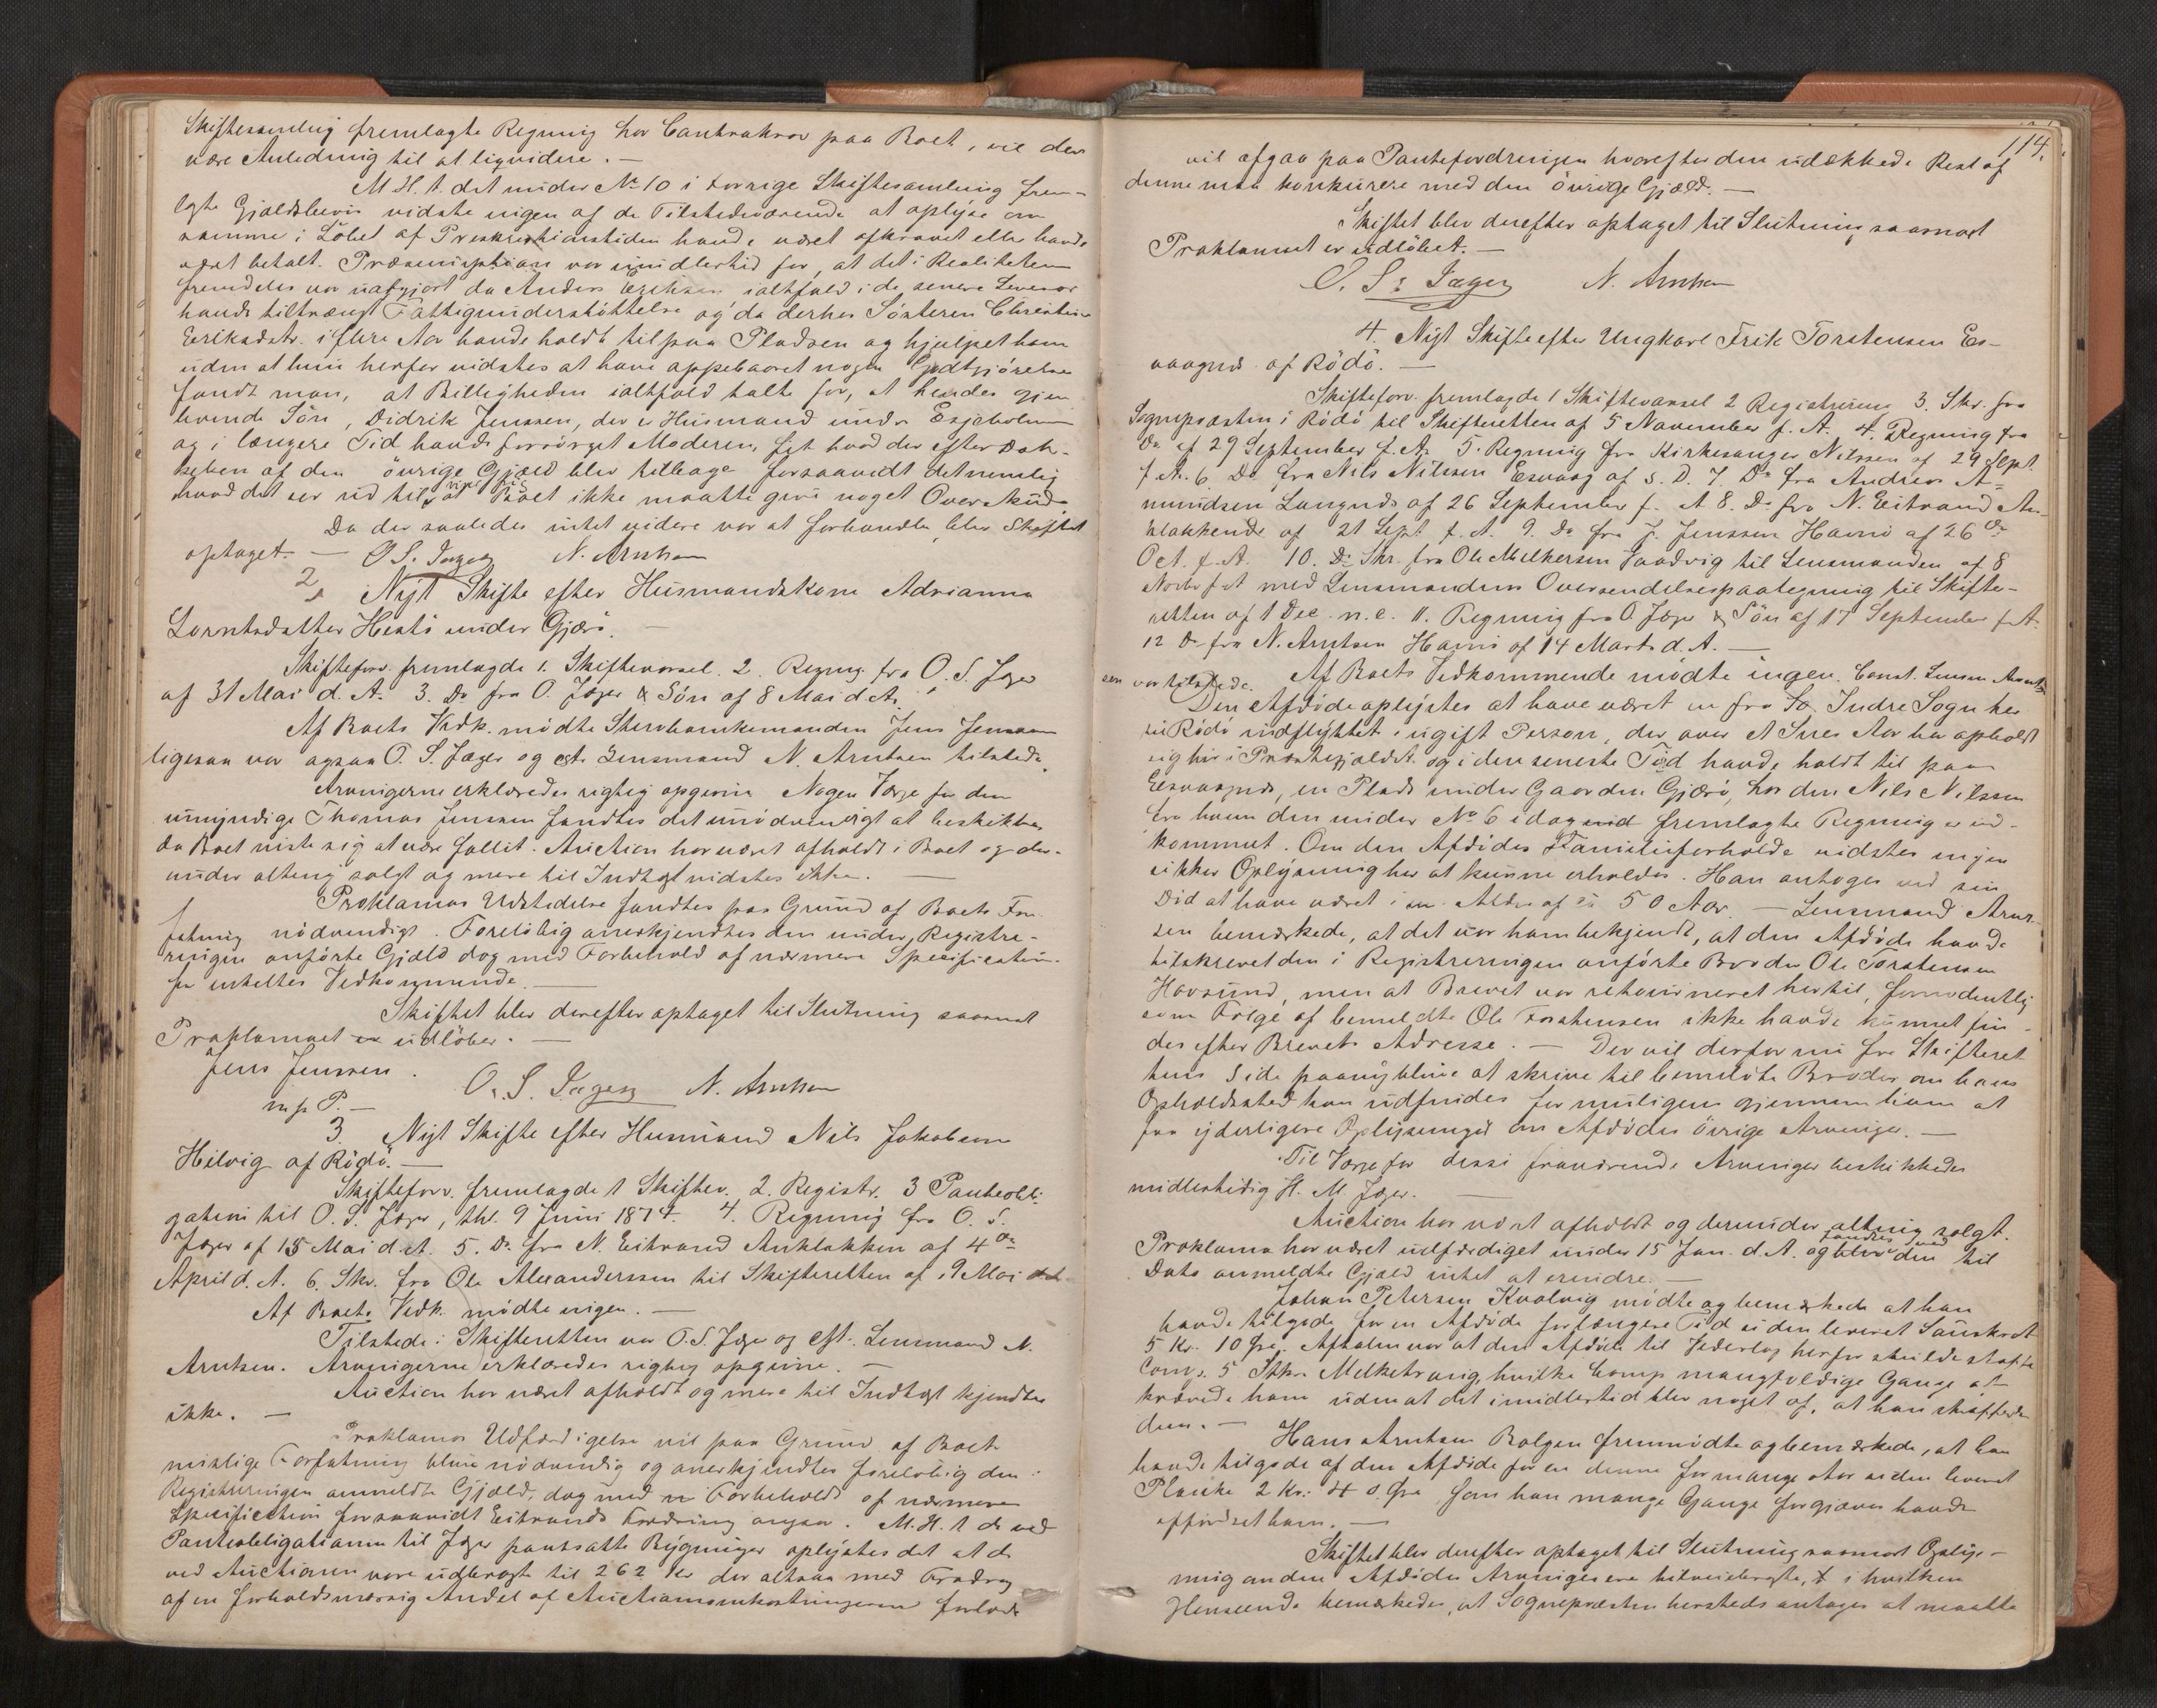 Skiftesamling fremlagte Regning har Contrakrav paa Boet, vil der
være Anledning til at liqvidere. —
M. H. t. det under No 10 i forrige Skiftesamling frem-
lagte Gjældsbevis vidste ingen af de Tilstedeværende at oplyse om
samme i Löbet af Preskriptionstiden havde været afkrævet eller havde
været betalt. Præsumptionen var imidlertid for, at det i Realiteten
fremdeles var uafgjort da Anders Eriksen ialtfald i de senere Leveaar
havde tiltrængt Fattigunderstöttelse og da derhos Sösteren Christine
Eriksdatr. i flere Aar havde holdt til paa Pladsen og hjulpet ham
uden at hun herfor vidstes at have oppebaaret nogen Godtgjörelse
fandt man, at Billigheden ialtfald talte for, at hendes gjen
levende Sön, Didrik Jenssen, der er Husmand under Esjeholmen
og i længere Tid havde forsörget Moderen, fik hvad der efter Dæk-
kelsen af den övrige Gjæld blev tilbage forsaavidt det nemlig
mod det ser ud til, at Boet ikke maatte give noget Overskud.
Da der saaledes intet videre var at forhandle, blev Skiftet
optaget. — O. S. Jæger N. Arntsen
2. Nyt Skifte efter Husmandskone Adrianna
Lorntsdatter Hestö under Gjærö. —
Skifteforv. fremlagde 1. Skiftevarsel. 2. Regng. fra O. S. Jæger
af 31 Mai d. A. 3. Do fra O. Jæger & Sön af 8 Mai d. A.
Af Boets Vedk. mödte Stervbomkemanden Jens Jenssen
ligesaa var ogsaa O. S. Jæger og cst. Lensmand N. Arntsen tilstede.
Arvingerne erklæredes rigtig opgivne. Nogen Værge for den
umyndige Thomas Jenssen fandtes det unödvendigt at beskikke,
da Boet viste sig at være fallit. Auction har været afholdt i Boet og der-
under alting solgt og mere til Indtægt vidstes ikke. —
Proklamas Udstedelse fandtes paa Grund af Boets For-
fatning nödvendigt. Forelöbig anerkjendtes den under Registre-
ringen anförte Gjæld dog med Forbehold af nærmere Specification
fra enkeltes Vedkommende. —
Skiftet blev derefter optaget til Slutning saasnart
Proklamaet er udlöbet. —
Jens Jenssen. O. S. Jæger N. Arntsen
m. p. P. —
3. Nyt Skifte efter Husmand Nils Jakobsen
Hilvig af Rödö. —
Skifteforv. fremlagde 1 Skiftev. 2. Registr. 3 Panteobli-
gation til O. S. Jæger, thl. 9 Juni 1874. 4. Regning fra O. S.
Jæger af 15 Mai d. A. 5. Do fra N. Eitrand Anklakken af 4de
April d. A. 6. Skr. fra Ole Alexanderssen til Skifteretten af 9 Mai
Af Boets Vedk. mödte ingen. —
Tilstede i Skifteretten var O. S. Jæger og cst. Lensmand N.
Arntsen. Arvingerne erklæredes rigtig opgivne. —
Auction har været afholdt og mere til Indtægt kjendtes
ikke. —
Proklamas Udfærdigelse vil paa Grund af Boets
mislige Forfatning blive nödvendig og anerkjendtes forelöbig den i
Registreringen anmeldte Gjæld, dog med Forbehold af nærmere
Specification forsaavidt Eitrands Fordring angaar. M. H. t. de ved
Panteobligationen til Jæger pantsatte Bygninger oplystes det at de
ved Auctionen vare udbragt til 262 Kr der altsaa med Fradrag
af en forholdsmæssig Andel af Auctionsomkostningerne forlods
114.
vil afgaa paa Pantefordringen hvorefter den udækkede Rest af
denne maa konkurere med den övrige Gjæld. —
Skiftet blev derefter optaget til Slutning saasnart
Proklamaet er udlöbet. —
O. S. Jæger N. Arntsen
4. Nyt Skifte efter Ungkarl Erik Torstensen Es-
vaagnes af Rödö. —
Skifteforv. fremlagde 1 Skiftevarsel 2 Registrering 3. Skr. fra
Sognepræsten i Rödö til Skifteretten af 5 November f. A. 4. Regning fra
Do af 29 September f. A. 5. Regning fra Kirkesanger Nilssen af 29 Sept.
f. A. 6. Do fra Nils Nilssen Esvaag af s. D. 7. Do fra Andreas A-
mundsen Langnes af 26 September f. A. 8. Do fra N. Eitrand An-
klakkende af 21 Sept. f. A. 9. Do fra J. Jenssen Havnö af 26de
Oct. f. A. 10. Do Skr. fra Ole Melkersen Vaadvig til Lensmanden af 8
Novbr f A med Lensmandens Oversendelsespaategning til Skifte-
retten af 1 Dec. n. e. 11. Regning fra O. Jæger & Sön af 17 September f. A.
12 Do fra N. Arntsen Havnö af 14 Marts d. A. —
Af Boets Vedkommende mödte ingen. Const. Lensm. Arnt-
sen var tilstede.
Den Afdöde oplystes at have været en fra Indre Sogn her
til Rödö indflyttet ugift Person, der over et Snes Aar har opholdt
sig her i Præstegjældet og i den seneste Tid havde holdt til paa
Esvaagnes, en Plads under Gaarden Gjærö, hos den Nils Nilssen
fra hvem den under No 6 idag fremlagte Regning er ind-
kommet. Om den Afdödes Familieforholde vidstes ingen
sikker Oplysning her at kunne erholdes. Han antoges ved sin
Död at have været i en Alder af 50 Aar. — Lensmand Arnt-
sen bemærkede, at det var ham bekjendt, at den Afdöde havde
tilskrevet den i Registreringen anförte Broder Ole Torstensen
Havsund, men at Brevet var retourneret hertil, formodentlig
som Fölge af bemeldte Ole Torstensen ikke havde kunnet fin-
des efter Brevets Adresse. — Der vil derfor nu fra Skifteret-
tens Side paany blive at skrive til bemeldte Broder om hans
Opholdssted kan udfindes for muligens gjennem ham at
faa yderligere Oplysninger om Afdödes övrige Arvinger. —
Til Værge for dessi fraværende Arvinger beskikkedes
midlertidig H. M. Jæger. —
Auction har været afholdt og derunder alting solgt.
Proklama har været udfærdiget under 15 Jan. d. A. og fandtes ved den til
Dato anmeldte Gjæld intet at erindre. —
Johan Petersen Kvalvig mödte og bemærkede at han
havde tilgode for en Afdöde for længere Tid siden leveret Saueskrot
5 Kr. 10 Öre. Aftalen var at den Afdöde til Vederlag herfor skulde skaffe
Comp. 5 Stkr Melketraug, hvilke Comp. mangfoldige Gange af-
krævede ham uden at det imidlertid blev noget af, at han skaffede
dem. —
Hans Arntsen Bolgen fremmödte og bemærkede, at han
havde tilgode af den Afdöde for en denne for mange Aar siden leveret
Planke 2 Kr. 40 Öre som han mange Gange forgjæves havde
affordret ham. —
Skiftet blev derefter optaget til Slutning saasnart Oplys-
ning om den Afdödes Arvinger ere tilveiebragte, i hvilken
Henseende bemærkedes, at Sognepræsten hersteds antages at maatte